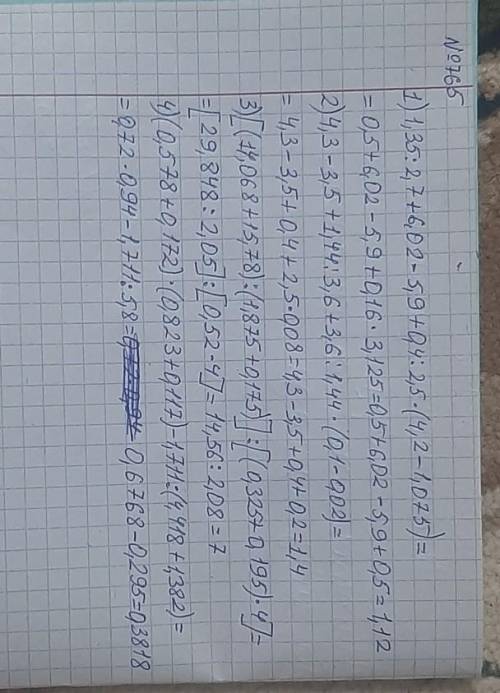 №765
1) 1,35:2,7+6,02-5,9+0,4:2,5·(4,2-1,075)=
=0,5+6,02-5,9+0,16·3,125=0,5+6,02-5,9+0,5=1,12
2) 4,3-3,5+1,44:3,6+3,6:1,44·(0,1-0,02)=
=4,3-3,5+0,4+2,5·0,08=4,3-3,5+0,4+0,2=1,4
3) [(14,068+15,78):(1,875+0,175)]:[(0,325+0,195)·4]=
=[29,848:2,05]:[0,52·4]=14,56:2,08=7
4) (0,578+0,172)·(0,823+0,117)-1,711:(4,418+1,382)=
=0,72·0,94-1,711:5,8= 0,6768-0,295=0,3818